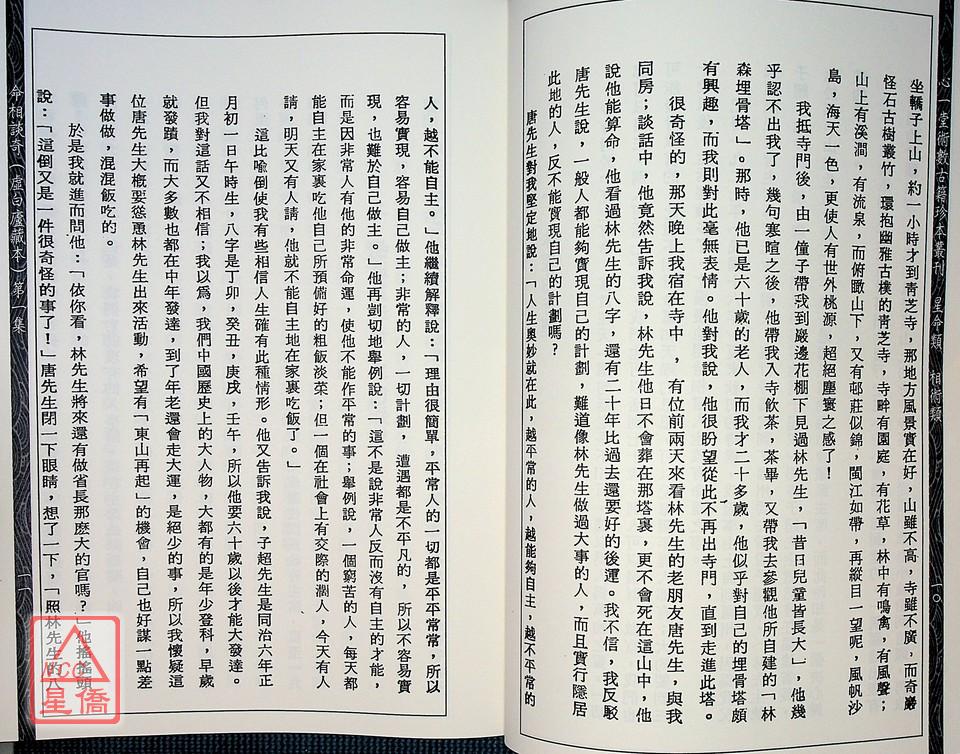 心一堂術數古籍珍本叢刊 星命類 相術類
一〇
坐轎子上山，約一小時才到青芝寺，那地方風景實在好，山雖不高，寺雖不廣，而奇巖
怪石古樹叢竹，環抱幽雅古樸的青芝寺，寺畔有園庭，有花草，林中有鳴禽，有風聲；
山上有溪澗，有流泉，而俯瞰山下，又有邨莊似錦，閩江如帶，再縱目一望呢，風帆沙
島，海天一色，更使人有世外桃源，超絕塵寰之感了！
我抵寺門後，由一僮子帶我到巖邊花棚下見過林先生，「昔日兒童皆長大」，他幾
乎認不出我了，幾句寒喧之後，他帶我入寺飲茶，茶畢，又帶我去參觀他所自建的「林
森埋骨塔」。那時，他已是六十歲的老人，而我才二十多歲，他似乎對自己的埋骨塔頗
有興趣，而我則對此毫無表情。他對我說，他很盼望從此不再出寺門，直到走進此塔。
很奇怪的，那天晚上我宿在寺中，有位前兩天來看林先生的老朋友唐先生，與我
同房；談話中，他竟然告訴我說，林先生他日不會葬在那塔裏，更不會死在這山中，他
說他能算命，他看過林先生的八字，還有二十年比過去還要好的後運。我不信，我反駁
唐先生說，一般人都能夠實現自己的計劃，難道像林先生做過大事的人，而且實行隱居
此地的人，反不能實現自己的計劃嗎？
唐先生對我堅定地說：「人生奧妙就在此，越平常的人，越能夠自主，越不平常的
人，越不能自主。」他繼續解釋說：「理由很簡單，平常人的一切都是平平常常，所以
容易實現，容易自己做主；非常的人，一切計劃，遭遇都是不平凡的，所以不容易實
現，也難於自己做主。」他再剴切地舉例說：「這不是說非常人反而沒有自主的才能，
而是因非常人有他的非常命運，使他不能作平常的事；舉例說，一個窮苦的人，每天都
能自主在家裏吃他自己所預備好的粗飯淡菜；但一個在社會上有交際的濶人，今天有人
請，明天又有人請，他就不能自主地在家裏吃飯了。」
這比喻倒使我有些相信人生確有此種情形。他又告訴我說，子超先生是同治六年正
月初一日午時生，八字是丁卯，癸丑，庚戌，壬午，所以他要六十歲以後才能大發達。
但我對這話又不相信；我以爲，我們中國歷史上的大人物，大都有的是年少登科，早歲
就發蹟，而大多數也都在中年發達，到了年老還會走大運，是絕少的事，所以我懷疑這
位唐先生大概要慫恿林先生出來活動，希望有「東山再起」的機會，自己也好謀一點差
事做做，混混飯吃的。
於是我就進而問他：「依你看，林先生將來還有做省長那麽大的官嗎？」他搖搖頭
說：「這倒又是一件很奇怪的事了！」唐先生閉一下眼睛，想了一下，「照林先生的八
命相談奇（虛白廬藏本）第一集
一一
NCC
星僑